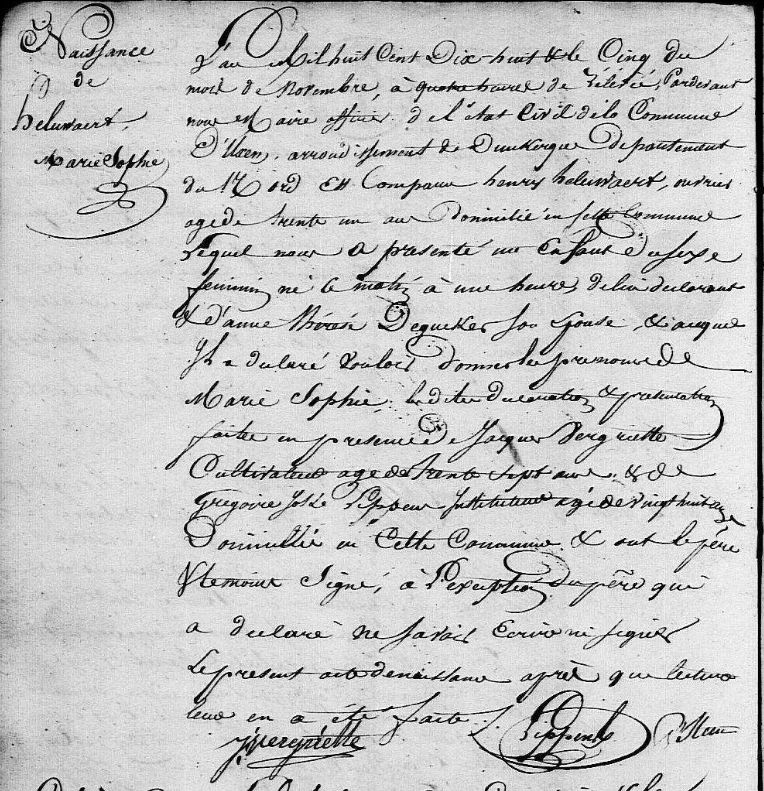 Naissance
de
heluwaert,
Marie Sophie
L'an Mil huit Cent Dix huit & le Cinq du
mois de Novembre, à quatre heures de rélevée, Pardevant
nous Maire officier de l'état Civil de la Commune
arrondissement de Dunkerque Departement
du Nord Est Comparu henry heluwaert, ouvrier
agé de trente un ans Domicilié en cette Commune
Lequel nous a presenté un Enfant du sexe
feminin né ce matin à une heure, de lui declarant
& d'anne thérése Dequeker son Epouse, & auquel
il a declaré vouloir donner les prenoms de
Marie Sophie, lesdites declaration & presentation
faites en presence de Jacques Vergriette
Cultivateur agé de trente sept ans & de
Grégoire José Instituteur agé de vingt huit ans
Domiciliés en Cette Commune & ont le père
& temoins Signé, à l'exception du père qui
a declaré ne savoir Ecrire ni signer
Le present acte de naissance après que lecture
leur en a été faite.
J Vergriette